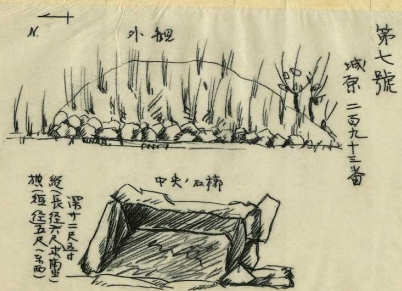 第七號
城原 二百九十三番
外観
N.
中央ノ石槨
深サ二尺五寸
縦(長径)六尺
横(短径)五尺(東西)